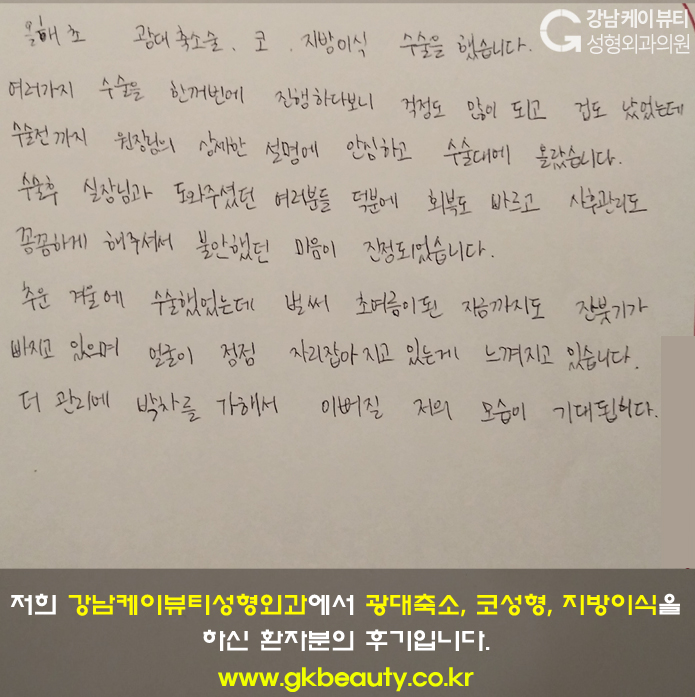 강남케이뷰티
성형외과의원
올해초 광대축소술, 코, 지방이식 수술을 했습니다.
여러가지 수술을 한꺼번에 진행하다보니 걱정도 많이 되고 겁도 났었는데
수술전까지 원장님의 상세한 설명에 안심하고 수술대에 올랐습니다.
수술후 실장님과 도와주셨던 여러분들 덕분에 회복도 빠르고 사후관리도
꼼꼼하게 해주셔서 불안했던 마음이 진정되었습니다.
추운 겨울에 수술했었는데 벌써 초여름이된 지금까지도 잔붓기가
빠지고 있으며 얼굴이 점점 자리잡아지고 있는게 느껴지고 있습니다.
더 관리에 박차를 가해서 이뻐질 저의 모습이 기대됩니다.
저희 강남케이뷰티성형외과에서 광대축소, 코성형, 지방이식을
하신 환자분의 후기입니다.
www.gkbeauty.co.kr